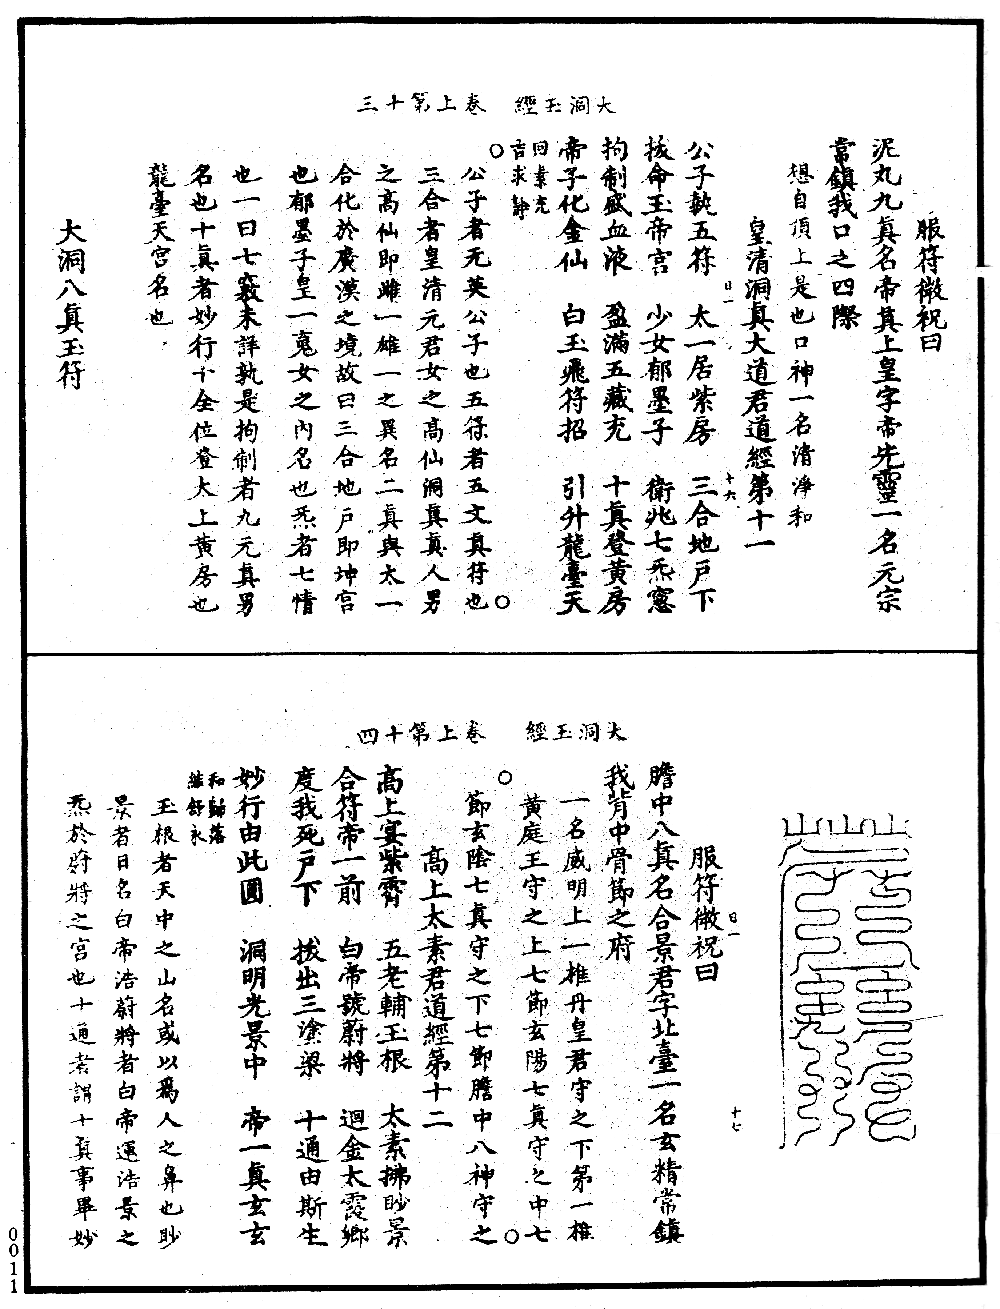 大洞玉經　卷上第十三
服符微祝曰
泥丸九真名帝其上皇字帝先靈一名元宗
常鎮我口之四際
想自頂上是也口神一名清淨和
皇清洞真大道君道經第十一
公子執五符　太一居紫房　三合地戸下
拔命玉帝宮　少女郁墨子　衛兆七炁窓
拘制感血液　盈滿五藏充　十真登黃房
帝子化金仙　白玉飛符招　引升龍臺天
公子者无英公子也五符者五文真符也
三合者皇清元君女之高仙洞真真人男
之高仙即雌一雄一之異名二真與太一
合化於廣漠之境故曰三合地戸即坤宮
也郁墨子皇一䰟女之內名也炁者七情
也一曰七竅未詳孰是拘制者九元真男
名也十真者妙行十全位登大上黃房也
龍臺天宮名也
大洞八真玉符
大洞玉經　卷上第十四
服符微祝曰
膽中八真名合景君字北臺一名玄精常鎮
我背中骨節之府
一名威明上一椎丹皇君守之下第一椎
黃庭王守之上七節玄陽七真守之中七
節玄陰七真守之下七節膽中八神守之
高上太素君道經第十二
高上宴紫霄　五老輔玉根　太素拂眇景
合符帝一前　白帝號蔚將　迴金太霞鄉
度我死戸下　拔出三塗梁　十通由斯生
妙行由此圓　洞明光景中　帝一真玄玄
玉根者天中之山名或以爲人之鼻也眇
景者日名白帝浩蔚將者白帝運浩景之
炁於蔚將之宮也十通者謂十真事畢妙
0011